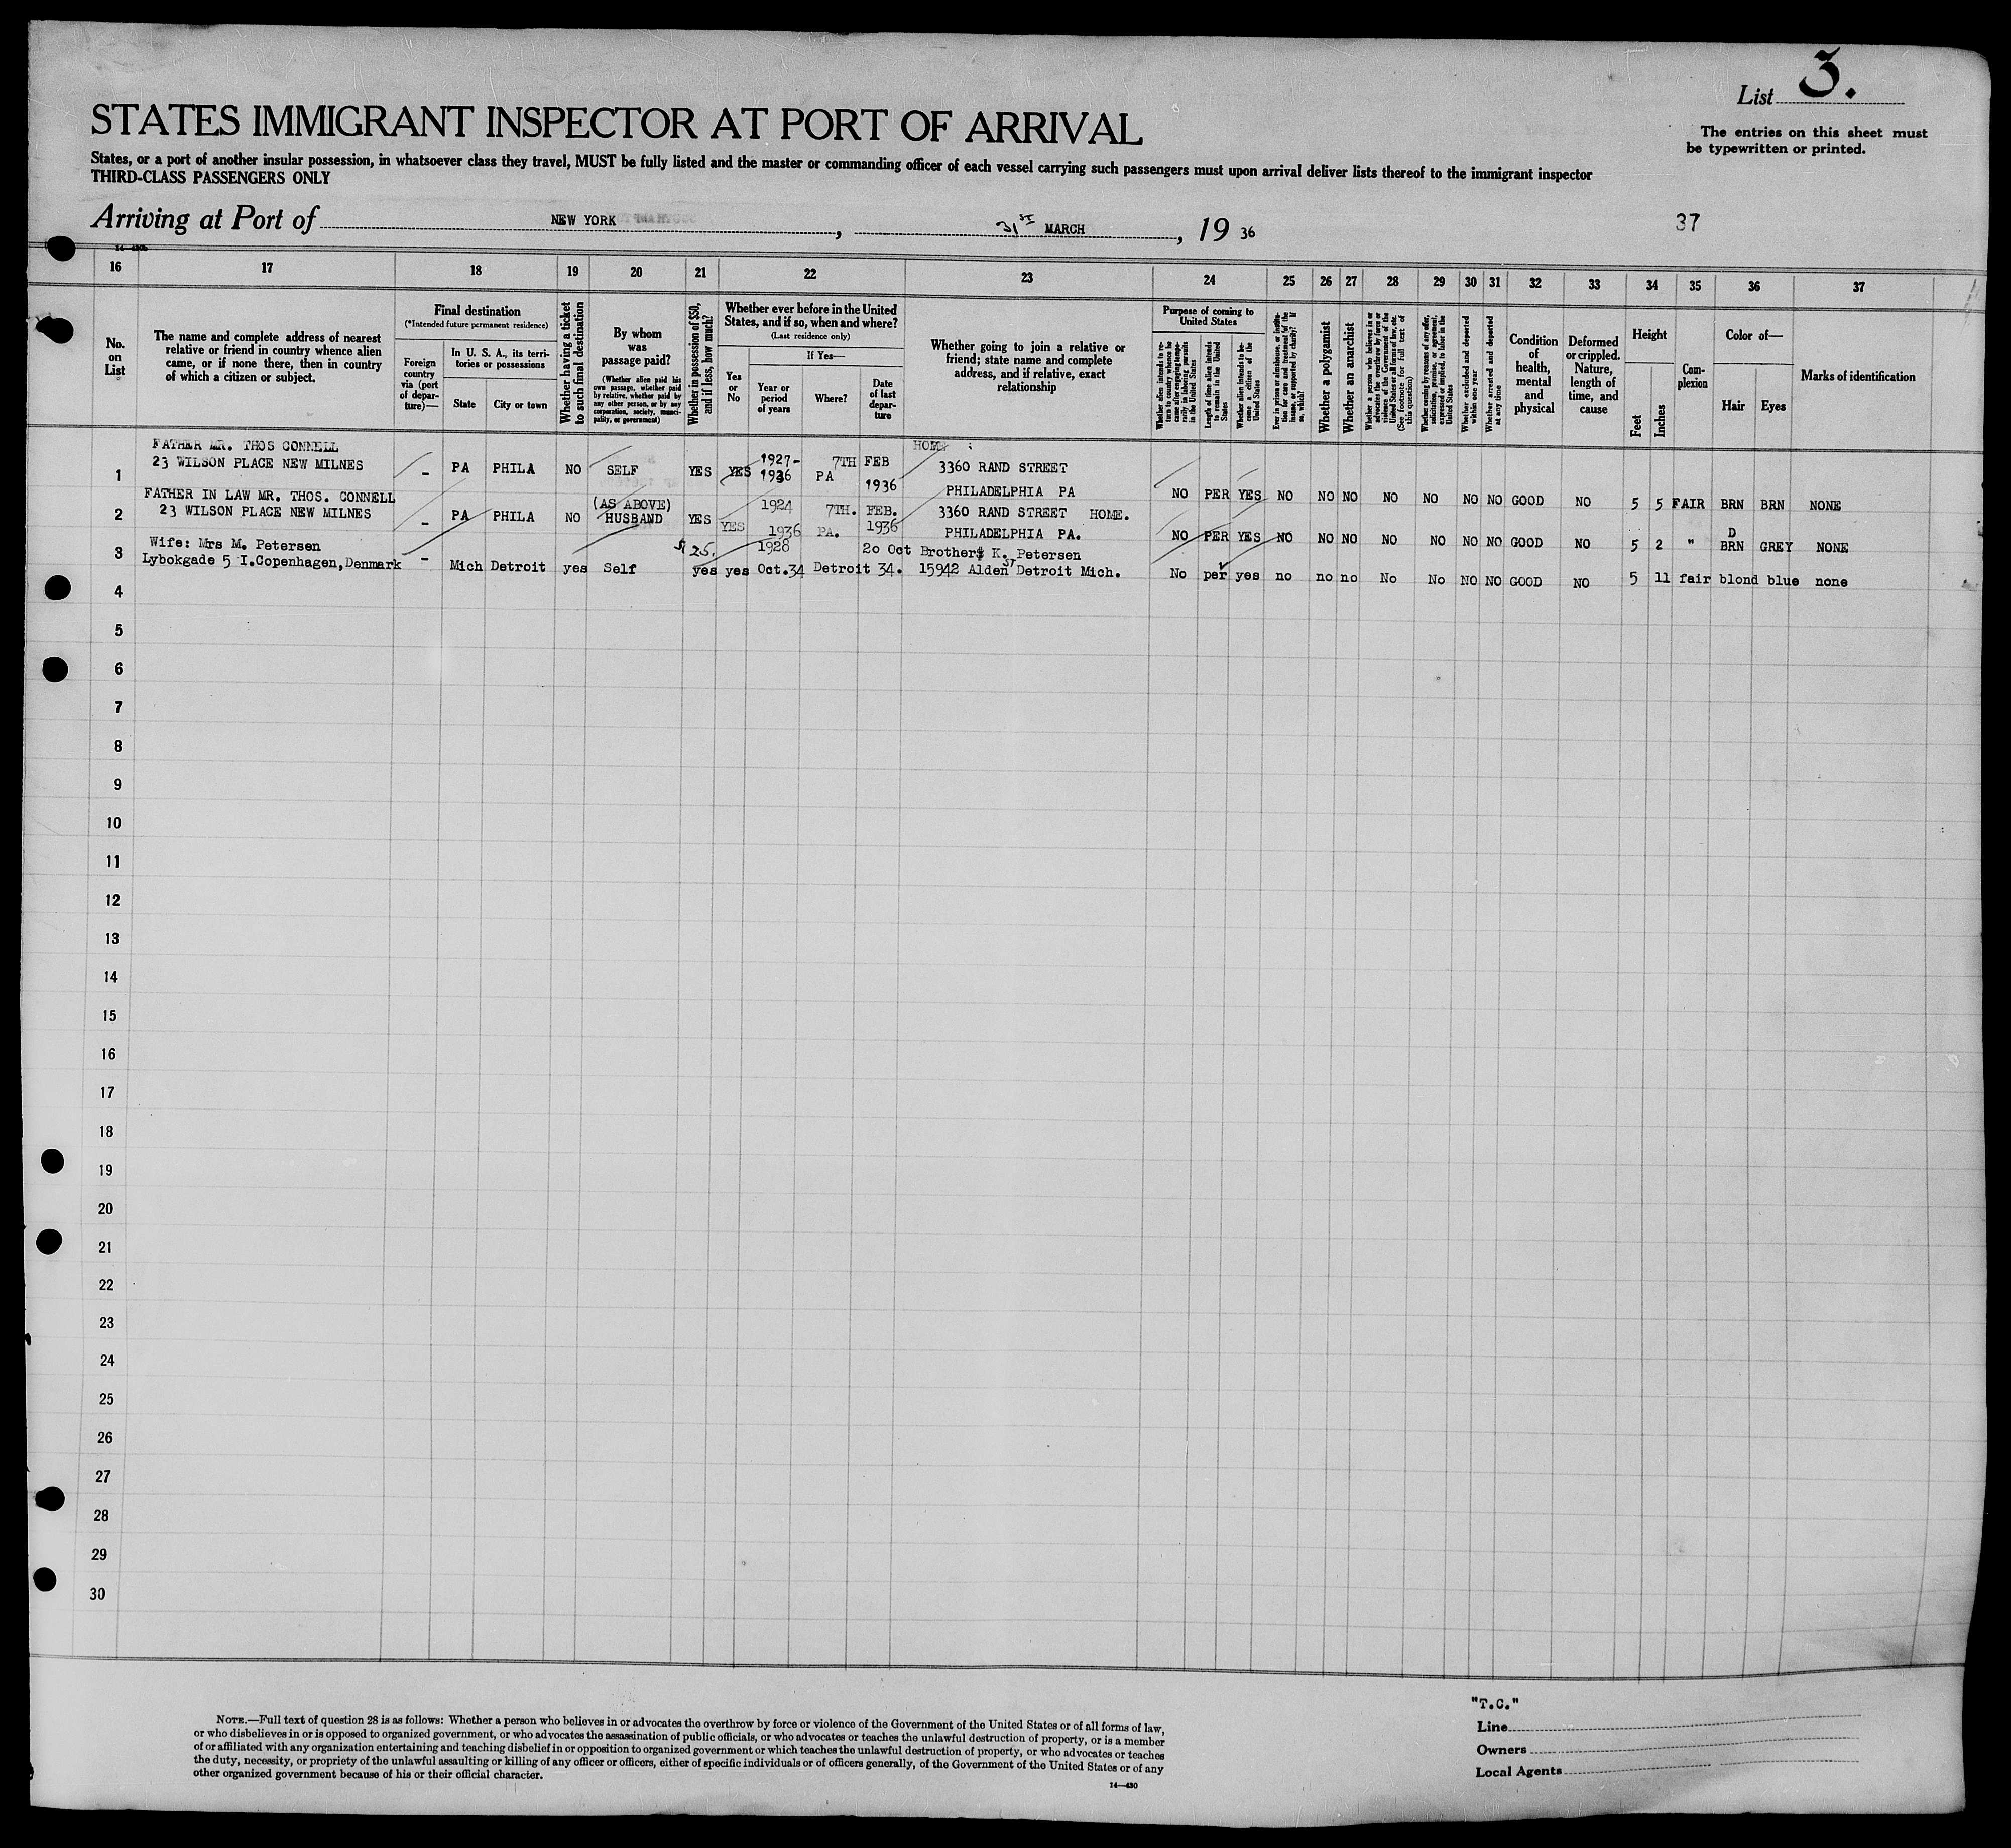 List 3.
STATES IMMIGRANT INSPECTOR AT PORT OF ARRIVAL
The entries on this sheet must
be typewritten or printed.
States, or a port of another insular possession, in whatsoever class they travel, MUST be fully listed and the master or commanding officer of each vessel carrying such passengers must upon arrival deliver lists thereof to the immigrant inspector
THIRD-CLASS PASSENGERS ONLY
Arriving at Port of NEW YORK, 31ST MARCH, 19 36
37
16 17 18 19 20 21 22 23 24 25 26 27 28 29 30 31 32 33 34 35 36 37
No.
on
List
The name and complete address of nearest
relative or friend in country whence alien
came, or if none there, then in country
of which a citizen or subject.
Final destination
(*Intended future permanent residence)
Foreign
country
via (port
of depar-
ture)—
In U. S. A., its terri-
tories or possessions
State
City or town
Whether having a ticket
to such final destination
By whom
was
passage paid?
(Whether alien paid his
own passage, whether paid
by relative, whether paid by
any other person, or by any
corporation, society, munici-
pality, or government)
Whether in possession of $50,
and if less, how much?
Whether ever before in the United
States, and if so, when and where?
(Last residence only)
Yes
or
No
If Yes—
Year or
period
of years
Where?
Date
of last
depar-
ture
Whether going to join a relative or
friend; state name and complete
address, and if relative, exact
relationship
Purpose of coming to
United States
Whether alien intends to re-
turn to country whence he
came after engaging tempo-
rarily in laboring pursuits
in the United States
Length of time alien intends
to remain in the United
States
Whether alien intends to be-
come a citizen of the
United States
Ever in prison or almshouse, or institu-
tion for care and treatment of the
insane, or supported by charity? If
so, which?
Whether a polygamist
Whether an anarchist
Whether a person who believes in or
advocates the overthrow by force or
violence of the Government of the
United States or all forms of law, etc.
(See footnote for full text of
this question)
Whether coming by reasons of any offer,
solicitation, promise, or agreement,
expressed or implied, to labor in the
United States
Whether excluded and deported
within one year
Whether arrested and deported
at any time
Condition
of
health,
mental
and
physical
Deformed
or crippled.
Nature,
length of
time, and
cause
Height
Feet
Inches
Com-
plexion
Color of—
Hair
Eyes
Marks of identification
FATHER MR. THOS CONNELL HOME
1 23 WILSON PLACE NEW MILNES – PA PHILA NO SELF YES YES 1927-1936 PA 7TH FEB 1936 3360 RAND STREET
PHILADELPHIA PA NO PER YES NO NO NO NO NO NO NO GOOD NO 5 5 FAIR BRN BRN NONE
FATHER IN LAW MR. THOS. CONNELL (AS ABOVE)
2 23 WILSON PLACE NEW MILNES – PA PHILA NO HUSBAND YES YES 1924 1936 PA. 7TH. FEB. 1936 3360 RAND STREET HOME.
PHILADELPHIA PA. NO PER YES NO NO NO NO NO NO NO GOOD NO 5 2 " D BRN GREY NONE
3 Wife: Mrs M. Petersen $25. 1928 20 Oct Brother K. Petersen
Lybokgade 5 I.Copenhagen,Denmark – Mich Detroit yes Self yes yes Oct.34 Detroit 34. 15942 Alden ST Detroit Mich. No per yes no no no No No NO NO GOOD NO 5 11 fair blond blue none
4
5
6
7
8
9
10
11
12
13
14
15
16
17
18
19
20
21
22
23
24
25
26
27
28
29
30
NOTE.—Full text of question 28 is as follows: Whether a person who believes in or advocates the overthrow by force or violence of the Government of the United States or of all forms of law,
or who disbelieves in or is opposed to organized government, or who advocates the assassination of public officials, or who advocates or teaches the unlawful destruction of property, or is a member
of or affiliated with any organization entertaining and teaching disbelief in or opposition to organized government or which teaches the unlawful destruction of property, or who advocates or teaches
the duty, necessity, or propriety of the unlawful assaulting or killing of any officer or officers, either of specific individuals or of officers generally, of the Government of the United States or of any
other organized government because of his or their official character.
14—430
"T.C."
Line
Owners
Local Agents